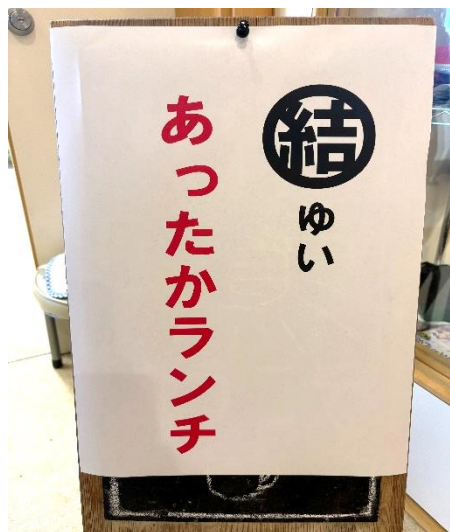 結
ゆい
あったかランチ